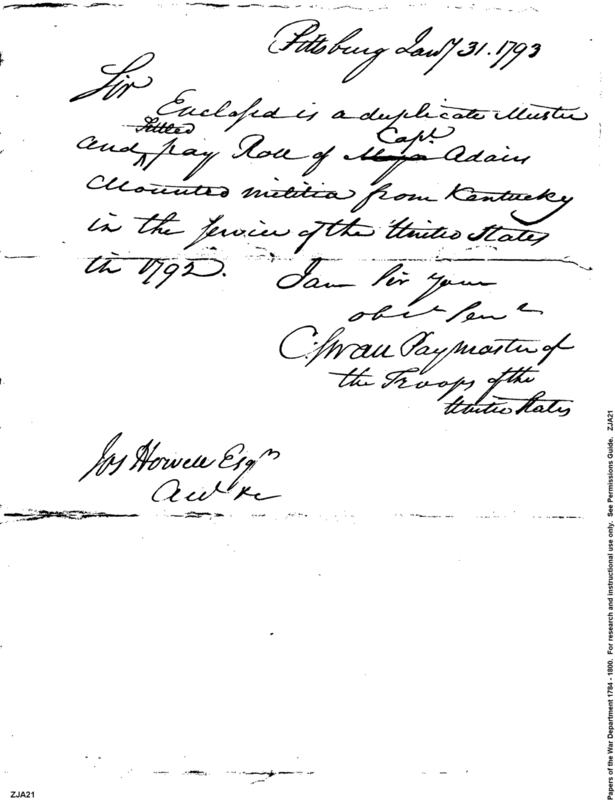 Pittsburg Jany 31. 1793
Sir
Enclosed is a duplicate Muster
Settled Capt.
and ^ pay Roll of Major Adairs
Mounted militia from Kentucky
in the service of the United States
in 1792.
I am Sir your
obt Sert
C: Swan Paymaster of
the Troops of the
United States
Jos Howell Esqr
Acct &c
Papers of the War Department 1784 - 1800. For research and instructional use only. See Permissions Guide. ZJA21
ZJA21